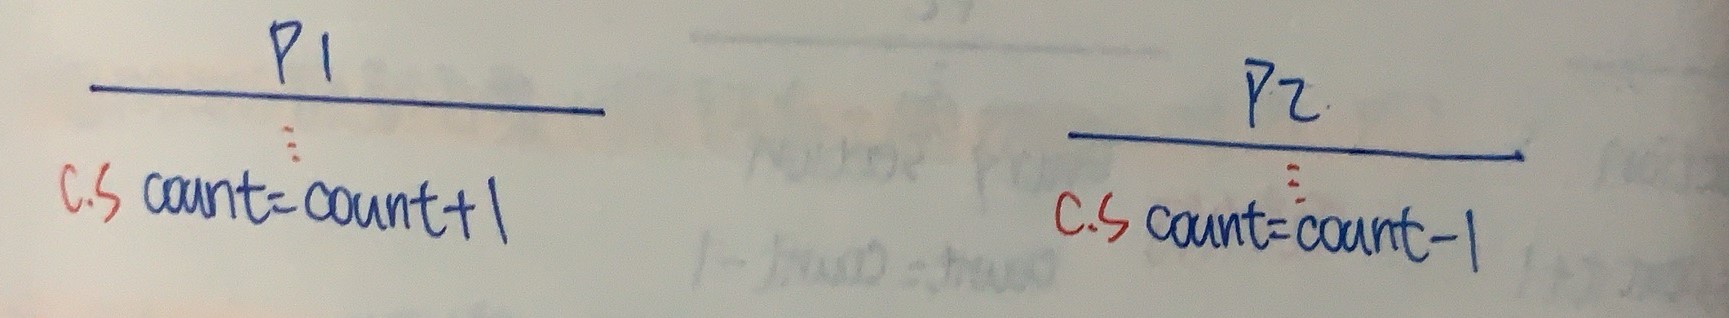 P1
⋮
C.S count=count+1
P2
⋮
C.S count=count-1